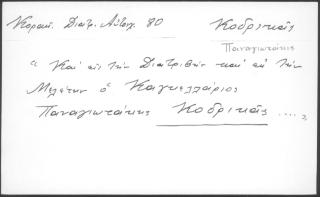 Κοραή. Διατρ. Αὐτοσχ. 80 Κοδρικᾶς
Παναγιωτάκης
"Καὶ εἰς τὴν Διατριβὴν καὶ εἰς τὴν
Μελέτην ὁ Καγκελλάριος
Παναγιωτάκης Κοδρικᾶς ....,